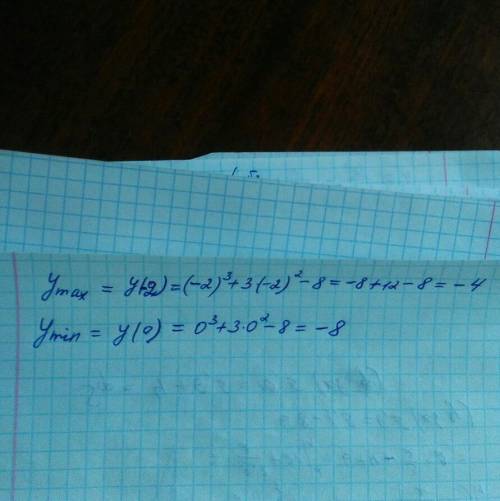 y max = y(-2) = (-2)³+3(-2)²-8 = -8+12-8 = -4
y min = y(0) = 0³+3·0²-8 = -8